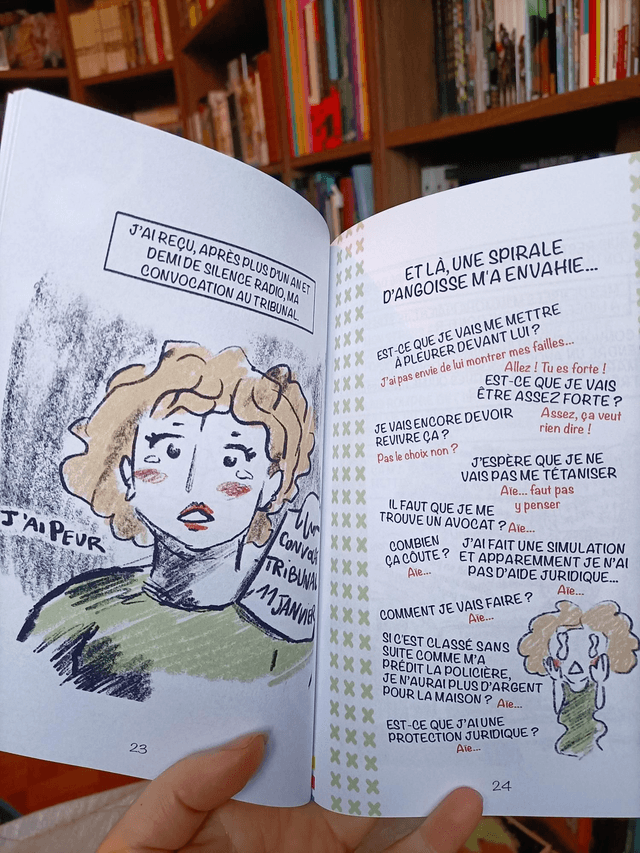 J'AI REÇU, APRÈS PLUS D'UN AN ET
DEMI DE SILENCE RADIO, MA
CONVOCATION AU TRIBUNAL
J'AI PEUR
CONVOC
TRIBUNAL
11 JANVIER
23
ET LÀ, UNE SPIRALE
D'ANGOISSE M'A ENVAHIE...
EST-CE QUE JE VAIS ME METTRE
À PLEURER DEVANT LUI ?
J'ai pas envie de lui montrer mes failles...
Allez ! Tu es forte !
EST-CE QUE JE VAIS
ÊTRE ASSEZ FORTE ?
Assez, ça veut
rien dire !
JE VAIS ENCORE DEVOIR
REVIVRE ÇA ?
Pas le choix non ?
J'ESPÈRE QUE JE NE
VAIS PAS ME TÉTANISER
Aïe... faut pas
y penser
IL FAUT QUE JE ME
TROUVE UN AVOCAT ? Aïe...
COMBIEN
ÇA COÛTE ?
Aïe...
J'AI FAIT UNE SIMULATION
ET APPAREMMENT JE N'AI
PAS D'AIDE JURIDIQUE...
Aïe...
COMMENT JE VAIS FAIRE ?
Aïe...
SI C'EST CLASSÉ SANS
SUITE COMME M'A
PRÉDIT LA POLICIÈRE,
JE N'AURAI PLUS D'ARGENT
POUR LA MAISON ? Aïe...
EST-CE QUE J'AI UNE
PROTECTION JURIDIQUE ?
Aïe...
24